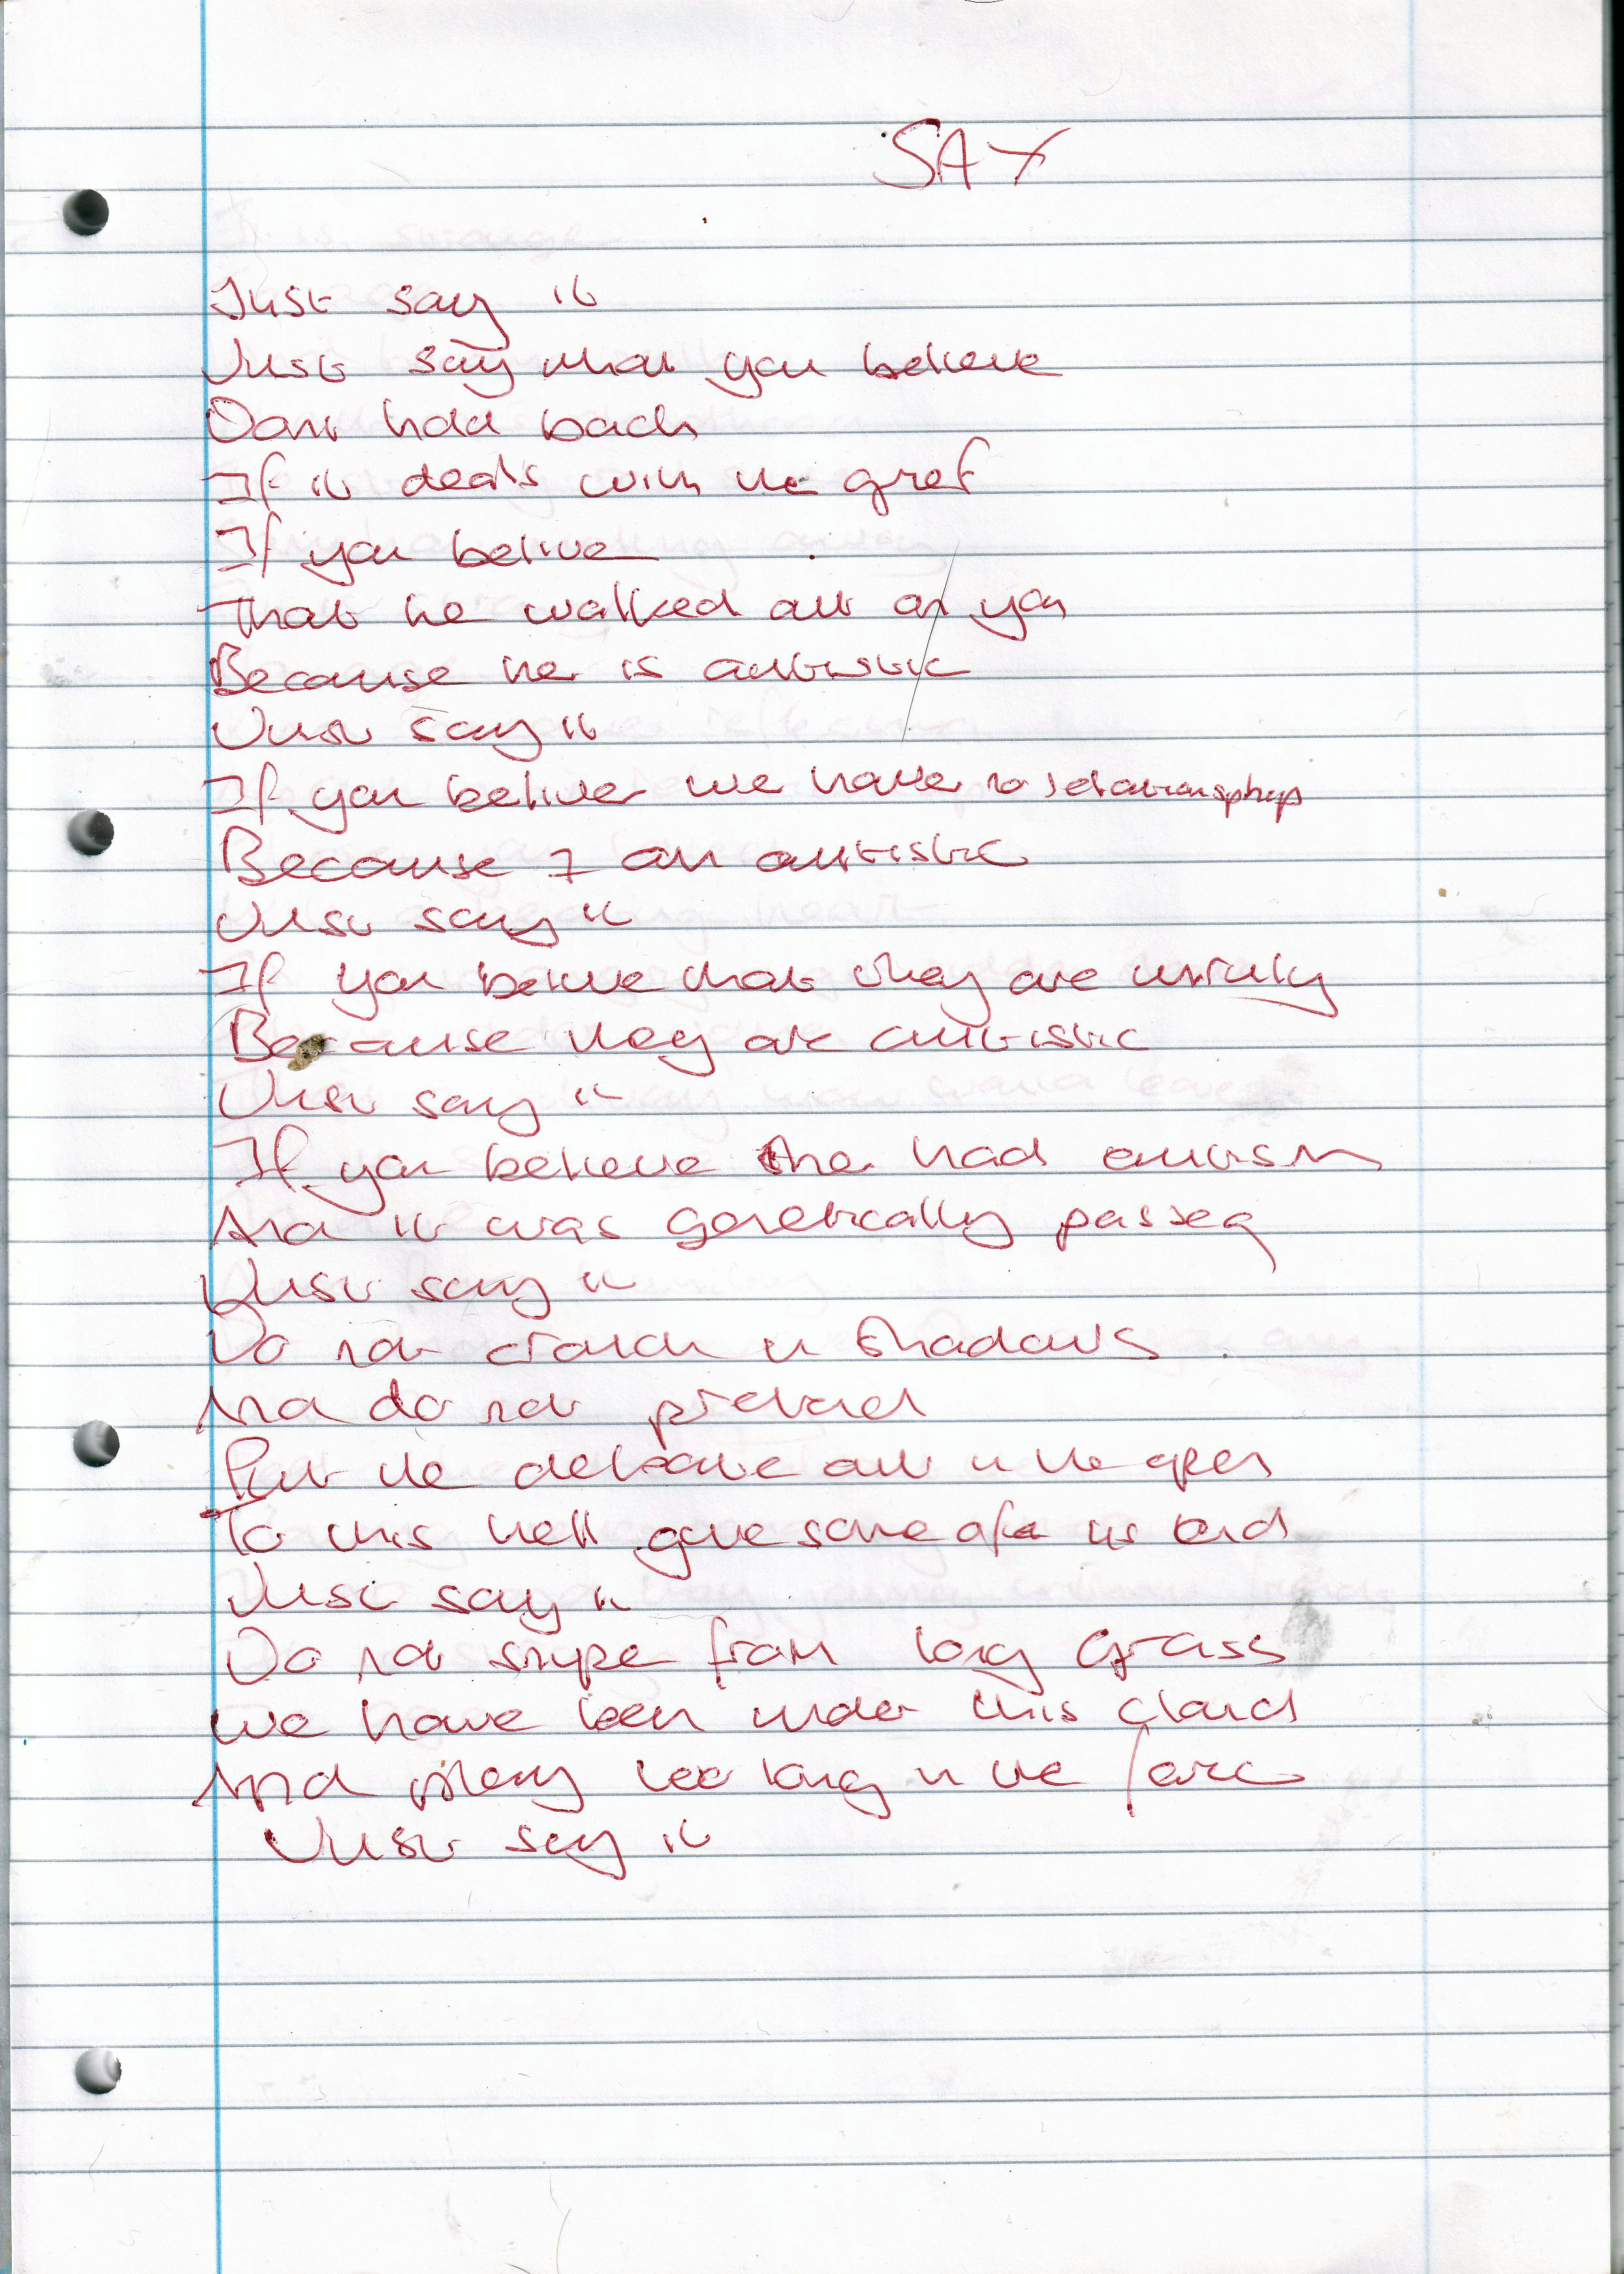 SAY
Just say it
Just say what you believe
Dont hold back
If it deals with the gref
If you belive
That he walked out on you
Because he is autistic
Just say it
If you belive we have no relationsphip
Because I am autistic
Just say it
If you belive that they are unruly
Because they are autistic
Just say it
If you believe she had autism
And it was genetically passed
Just say it
Do not crouch in shadows
And do not pretend
Put the debate out in the open
To this hell give some of us end
Just say it
Do not snipe from long grass
We have been under this cloud
And too long in the farc
Just say it